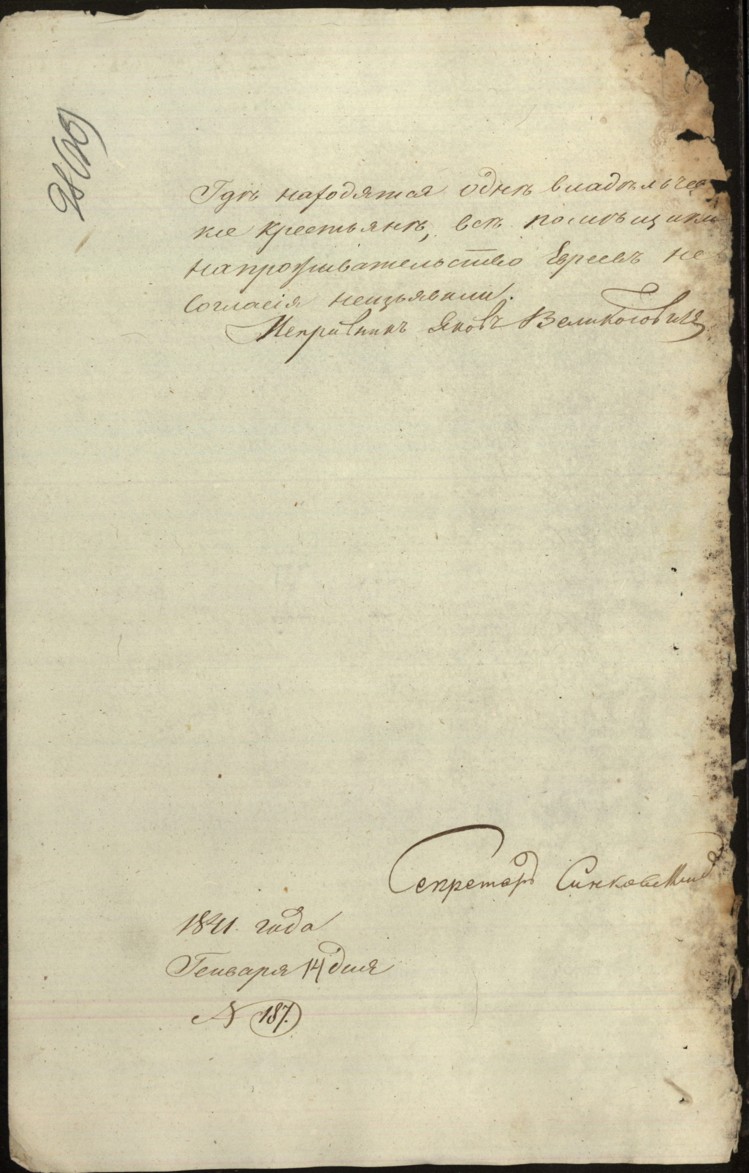 28(об)
Гдѣ находятся однѣ владѣльчес
кіе крестьянѣ, всѣ помѣщики
на прожывательство Евреевъ не
согласія неизъявили.
Исправникъ Яковъ Великосович
Секретарь
1841 года
Генваря 14 дня
№ 187.